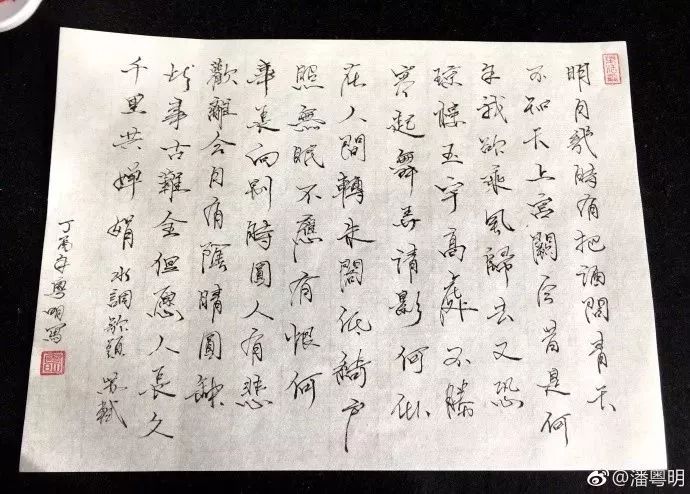 明月幾時有把酒問青天
不知天上宮闕今昔是何
年我欲乘風歸去又恐
瓊樓玉宇高處不勝
寒起舞弄清影何似
在人間轉朱閣低綺戶
照無眠不應有恨何
事長向別時圓人有悲
歡離合月有陰晴圓缺
此事古難全但愿人長久
千里共嬋娟 水調歌頭 蘇軾
丁酉年粵明寫
@潘粤明